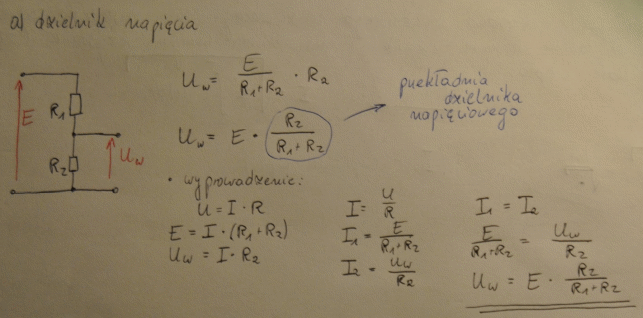 a) dzielnik napięcia
E
R₁
R₂
U_w
U_w = E/(R₁+R₂) · R₂
U_w = E · R₂/(R₁+R₂)
przekładnia
dzielnika
napięciowego
• wyprowadzenie:
U = I · R
E = I · (R₁+R₂)
U_w = I · R₂
I = U/R
I₁ = E/(R₁+R₂)
I₂ = U_w/R₂
I₁ = I₂
E/(R₁+R₂) = U_w/R₂
U_w = E · R₂/(R₁+R₂)